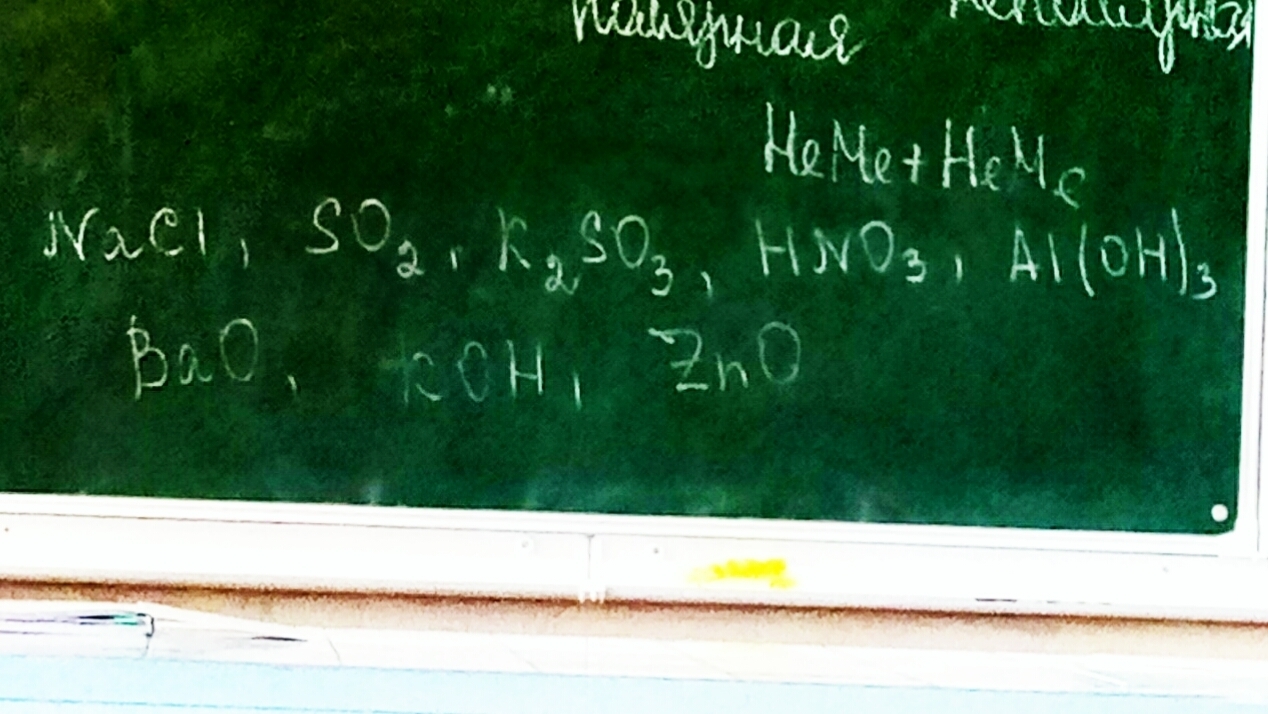 полярная неполярная
НеМе+НеМе
NaCl, SO₂, K₂SO₃, HNO₃, Al(OH)₃
BaO, KOH, ZnO